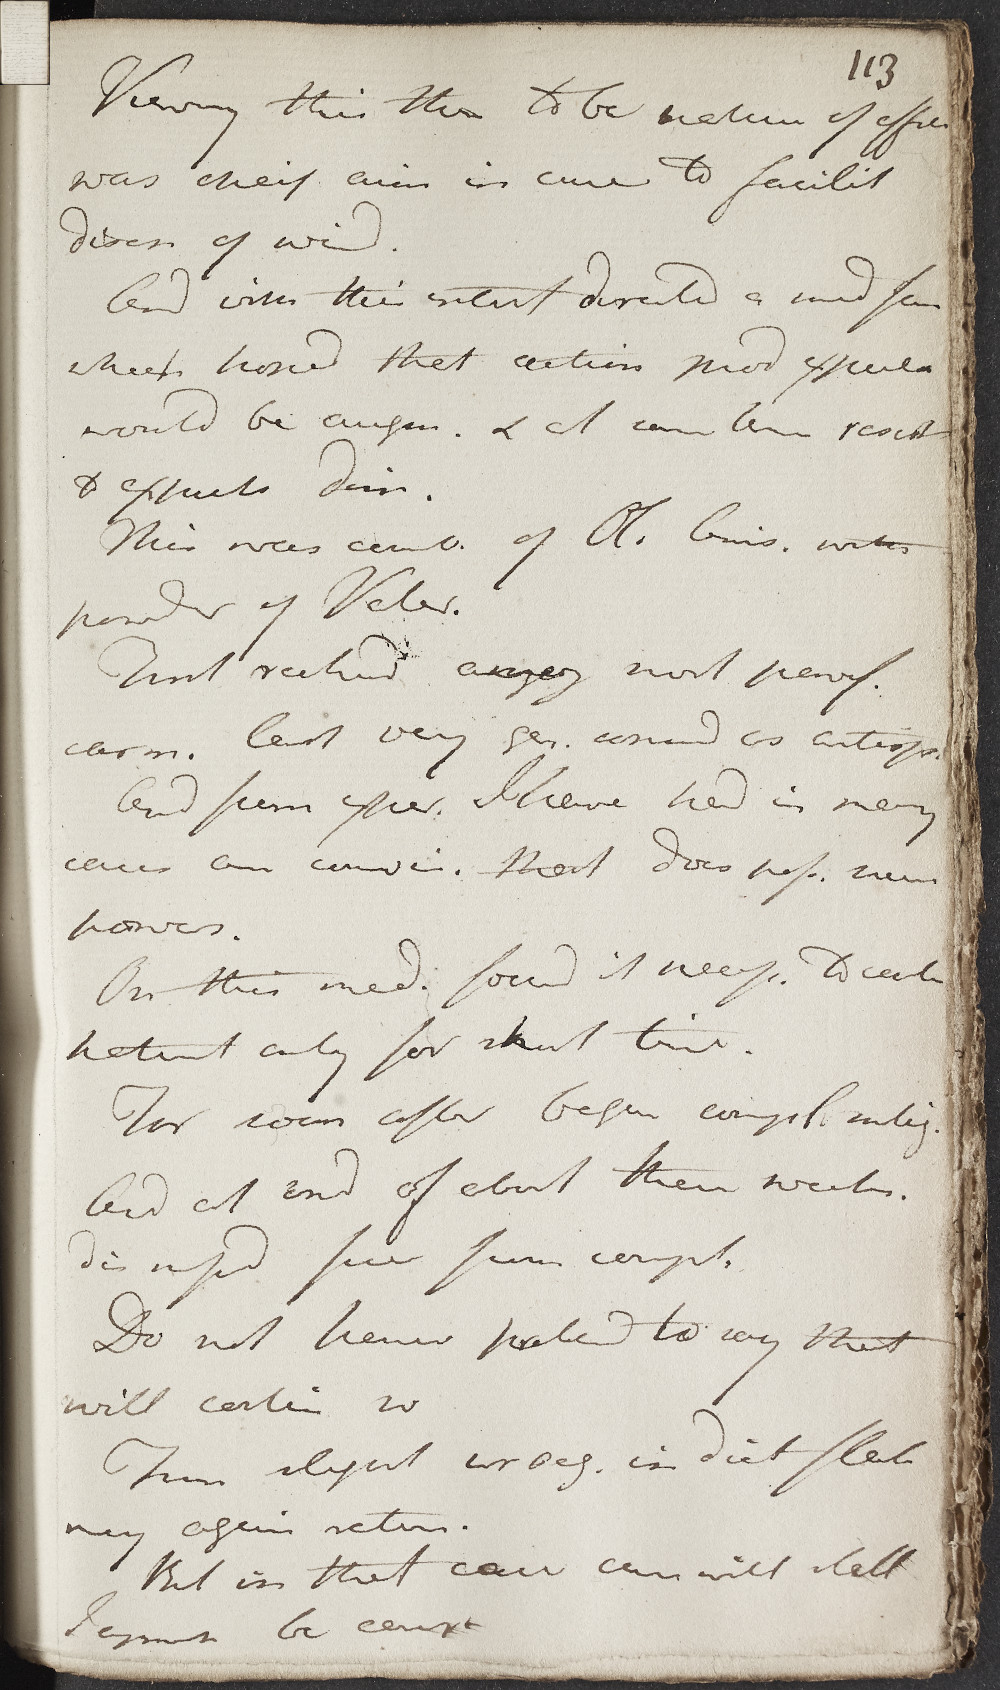 113
Viewing this then to be nature of affec
was cheif aim in cure to facilit
disch of wind.
And with this intent directed a med from
which hoped that action prod expuls
would be augm. & at same time resist
to expuls dim.
This was comb. of Ol. Anis. with
powder of Valer.
First reckned among most powf.
carm. last very gen. consid as antisp.
And from exper. I have had in many
cases am convin. that does poss. such
powers.
On this med. found it necess. to
patient only for short time.
For soon after began compl mitig.
And at end of about three weeks.
dismissd free from compl.
Do not hower pretend to say that
will contin so
From slight irreg. in diet flatu
may again return.
But in that case cure will still
I apprreh be easy